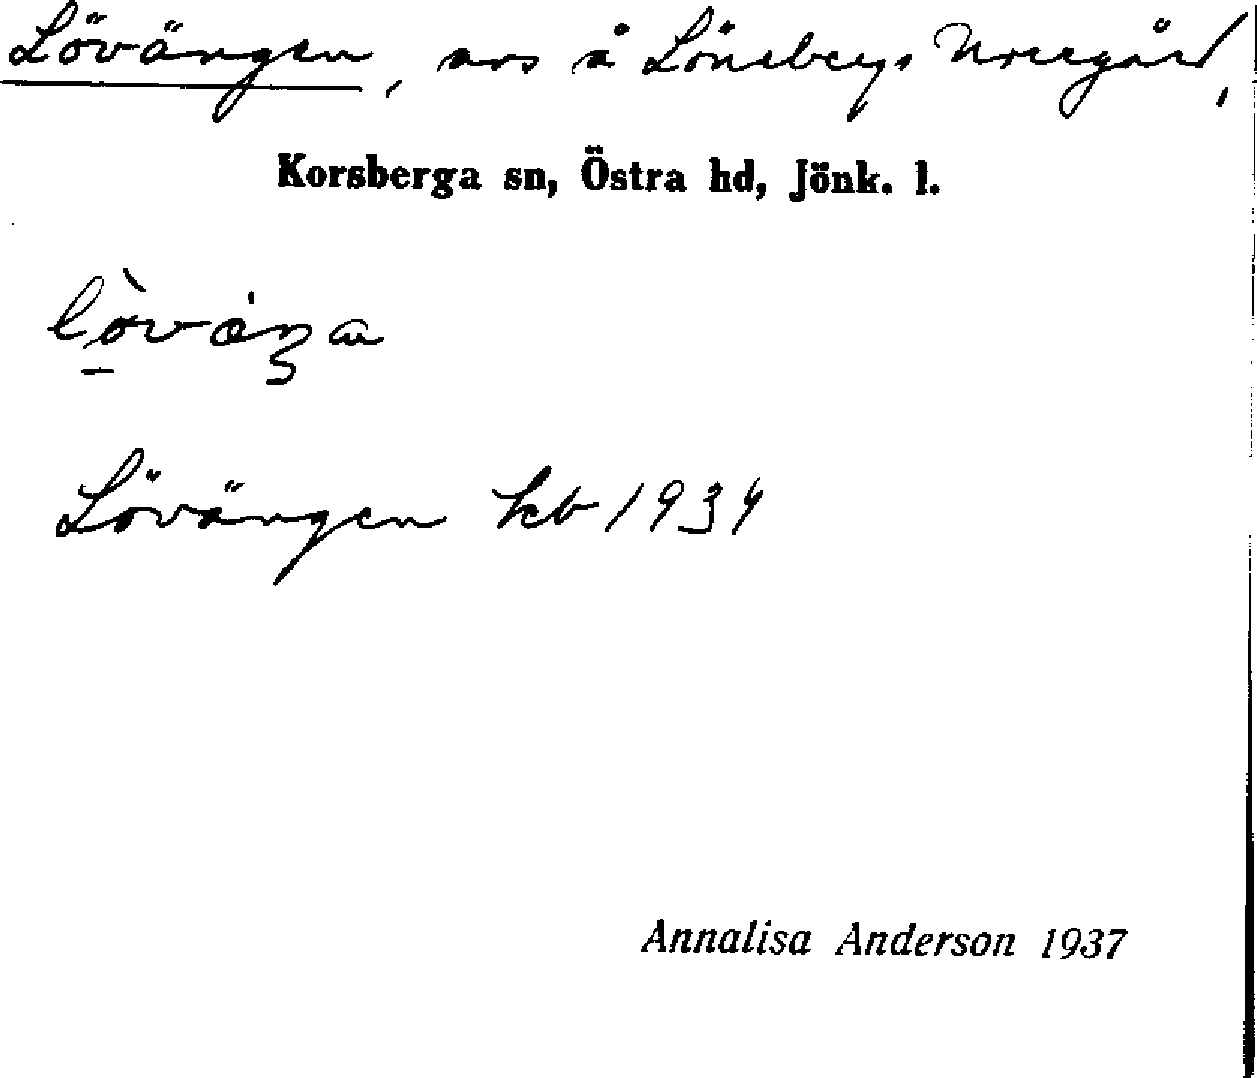 Lövängen, avs å Löneberga Norregård,
Korsberga sn, Östra hd, Jönk. l.
Lövängen kb 1934
Annalisa Anderson 1937